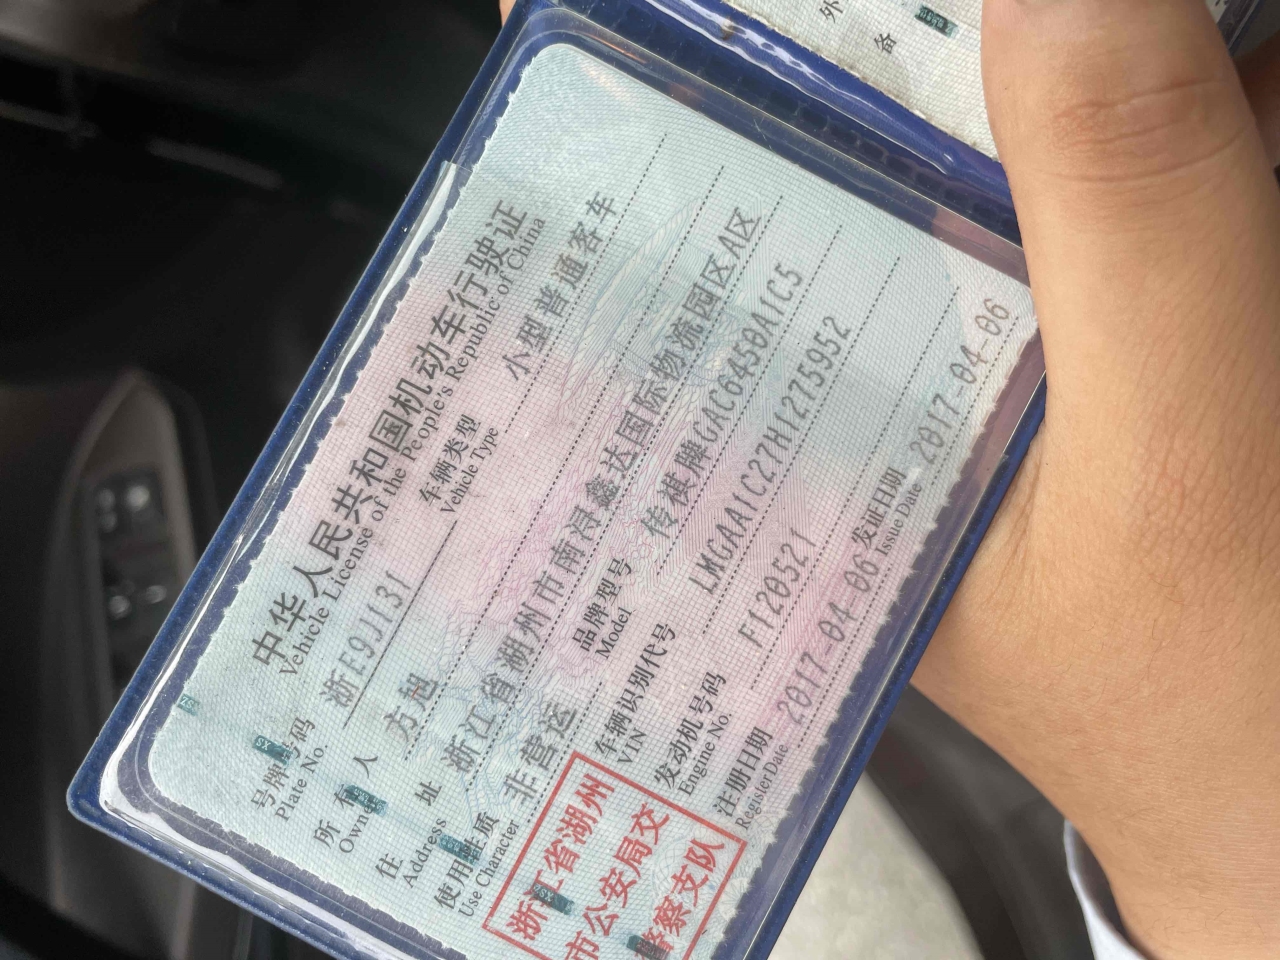 中华人民共和国机动车行驶证
Vehicle License of the People's Republic of China
号牌号码 浙E9J131 车辆类型 小型普通客车
Plate No. Vehicle Type
所有人 方旭
Owner
住址 浙江省湖州市南浔鑫达国际物流园区A区
Address
使用性质 非营运 品牌型号 传祺牌GAC6450A1C5
Use Character Model
车辆识别代号 LMGAA1C27H1275952
VIN
发动机号码 F120521
Engine No.
注册日期 2017-04-06 发证日期 2017-04-06
Register Date Issue Date
浙江省湖州
市公安局交
警察支队
外
备